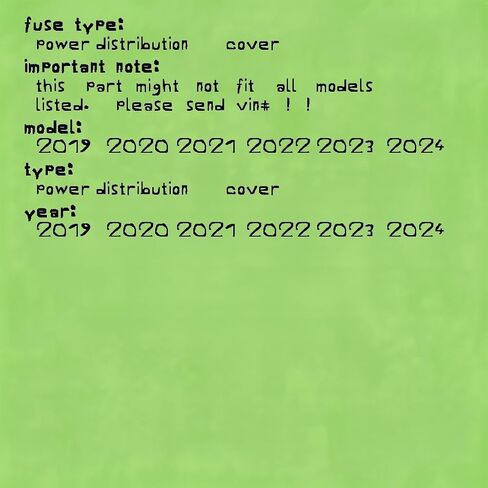 fuse type:
power distribution cover
important note:
this part might not fit all models
listed. please send vin# ! !
model:
2019 2020 2021 2022 2023 2024
type:
power distribution cover
year:
2019 2020 2021 2022 2023 2024